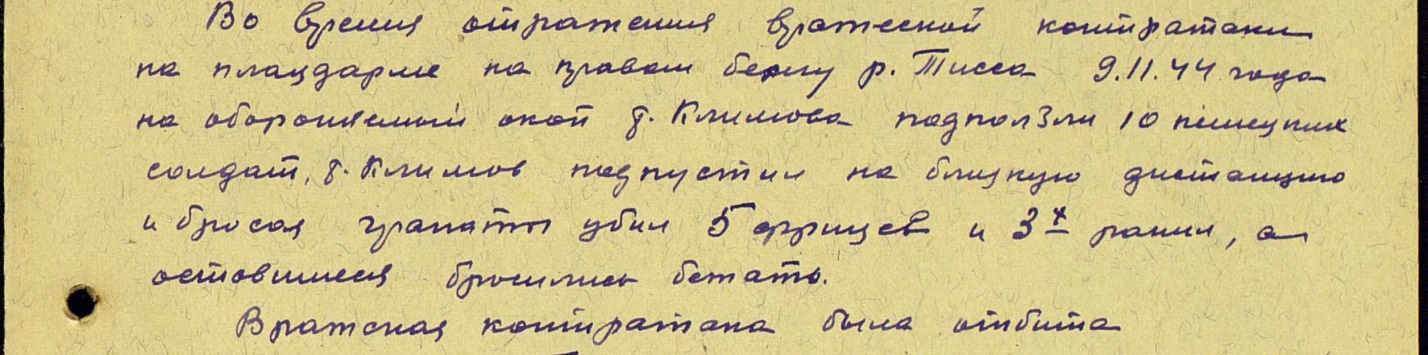 Во время отражения вражеской контратаки
на плацдарме на правом берегу р. Тисса 9.11.44 года
на обороняемый окоп т. Климова подползли 10 немецких
солдат, т. Климов подпустил на близкую дистанцию
и бросая гранаты убил 5 фрицев и 3х ранил, а
оставшиеся бросились бежать.
Вражеская контратака была отбита